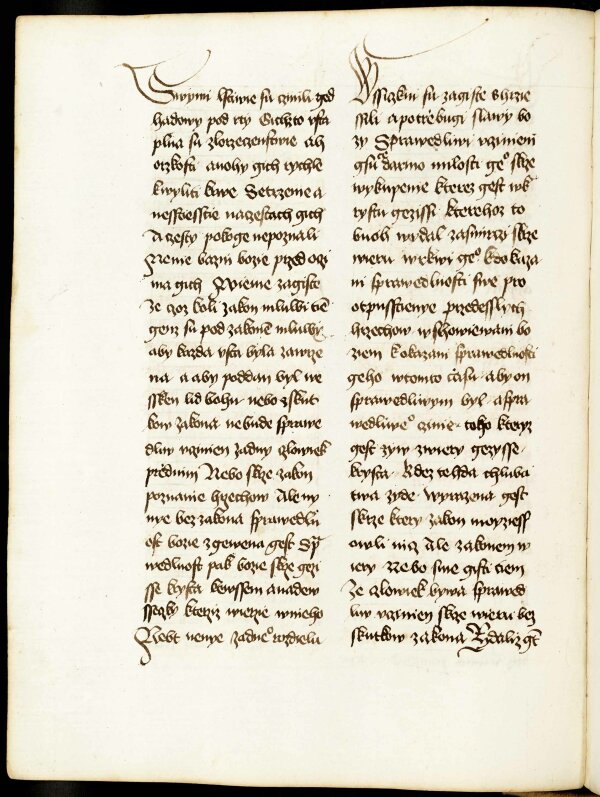 Swymi lstiwie su czinili ged
hadowy pod rty Gichzto vsta
plna su zlorzeczenstwie ah
orzkosti a nohy gich rychle
k wyliti krwe Setrzenie a
nesstiesstie na czestach gich
A czesty pokoge nepoznali
Nenie bazni bozie przed oczi
ma gich Wieme zagiste
Ze czoz koli zakon mluwi tie
genz su pod zakone mluwy
aby kazda vsta byla zawrze
na a aby poddan byl we
ssken lid bohu nebo z skut
kow zakona nebude sprawe
dliw vczinien zadny czlowiek
przed nim Nebo skrze zakon
poznanie hrzechow Ale ny
nye bez zakona sprawedln
ost bozie zgewena gest Spra
wedlnost pak bozie skrze gezi
sse krysta k wssem a nade w
sseczky kterziz wierzie w nieho
Nebt nenye zadneo rozdielu
Wssiczkni su zagiste shrzie
ssili a potrebugi slawy bo
zy Sprawedliwi vczineni
gsu darmo milosti geo skrze
wykupenie kterez gest w k
rystu gezissi kterehoz to
buoh wydal za smirczi skrze
wieru w krwi geo k dokaza
ni sprawedlnosti swe pro
otpusstienye przedesslych
hrzechow w schowiewani bo
ziem k okazani sprawedlnosti
geho w tomto czasu aby on
sprawedliwym byl a spra
wedliweo czinie toho kteryz
gest zyw z wiery gezysse
krysta Kdez tehda chluba
twa zyde Wyrazena gest
skrze ktery zakon moyziess
owli nicz Ale zakonem w
iery Nebo sme gisti tiem
Ze czlowiek bywa sprawed
liw vczinien skrze wieru bez
skutkow zakona Zdaliz gt